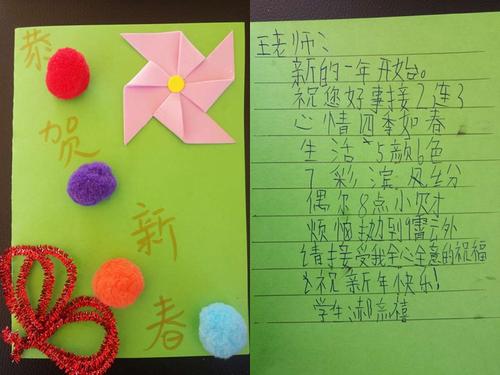 恭
贺
新
春
王老师:
新的一年开始。
祝您好事接2连3
心情四季如春
生活5颜6色
7彩滨风纷
偶尔8点小财
烦恼抛到9霄云外
请接受我全心全意的祝福
祝新年快乐!
学生:郝